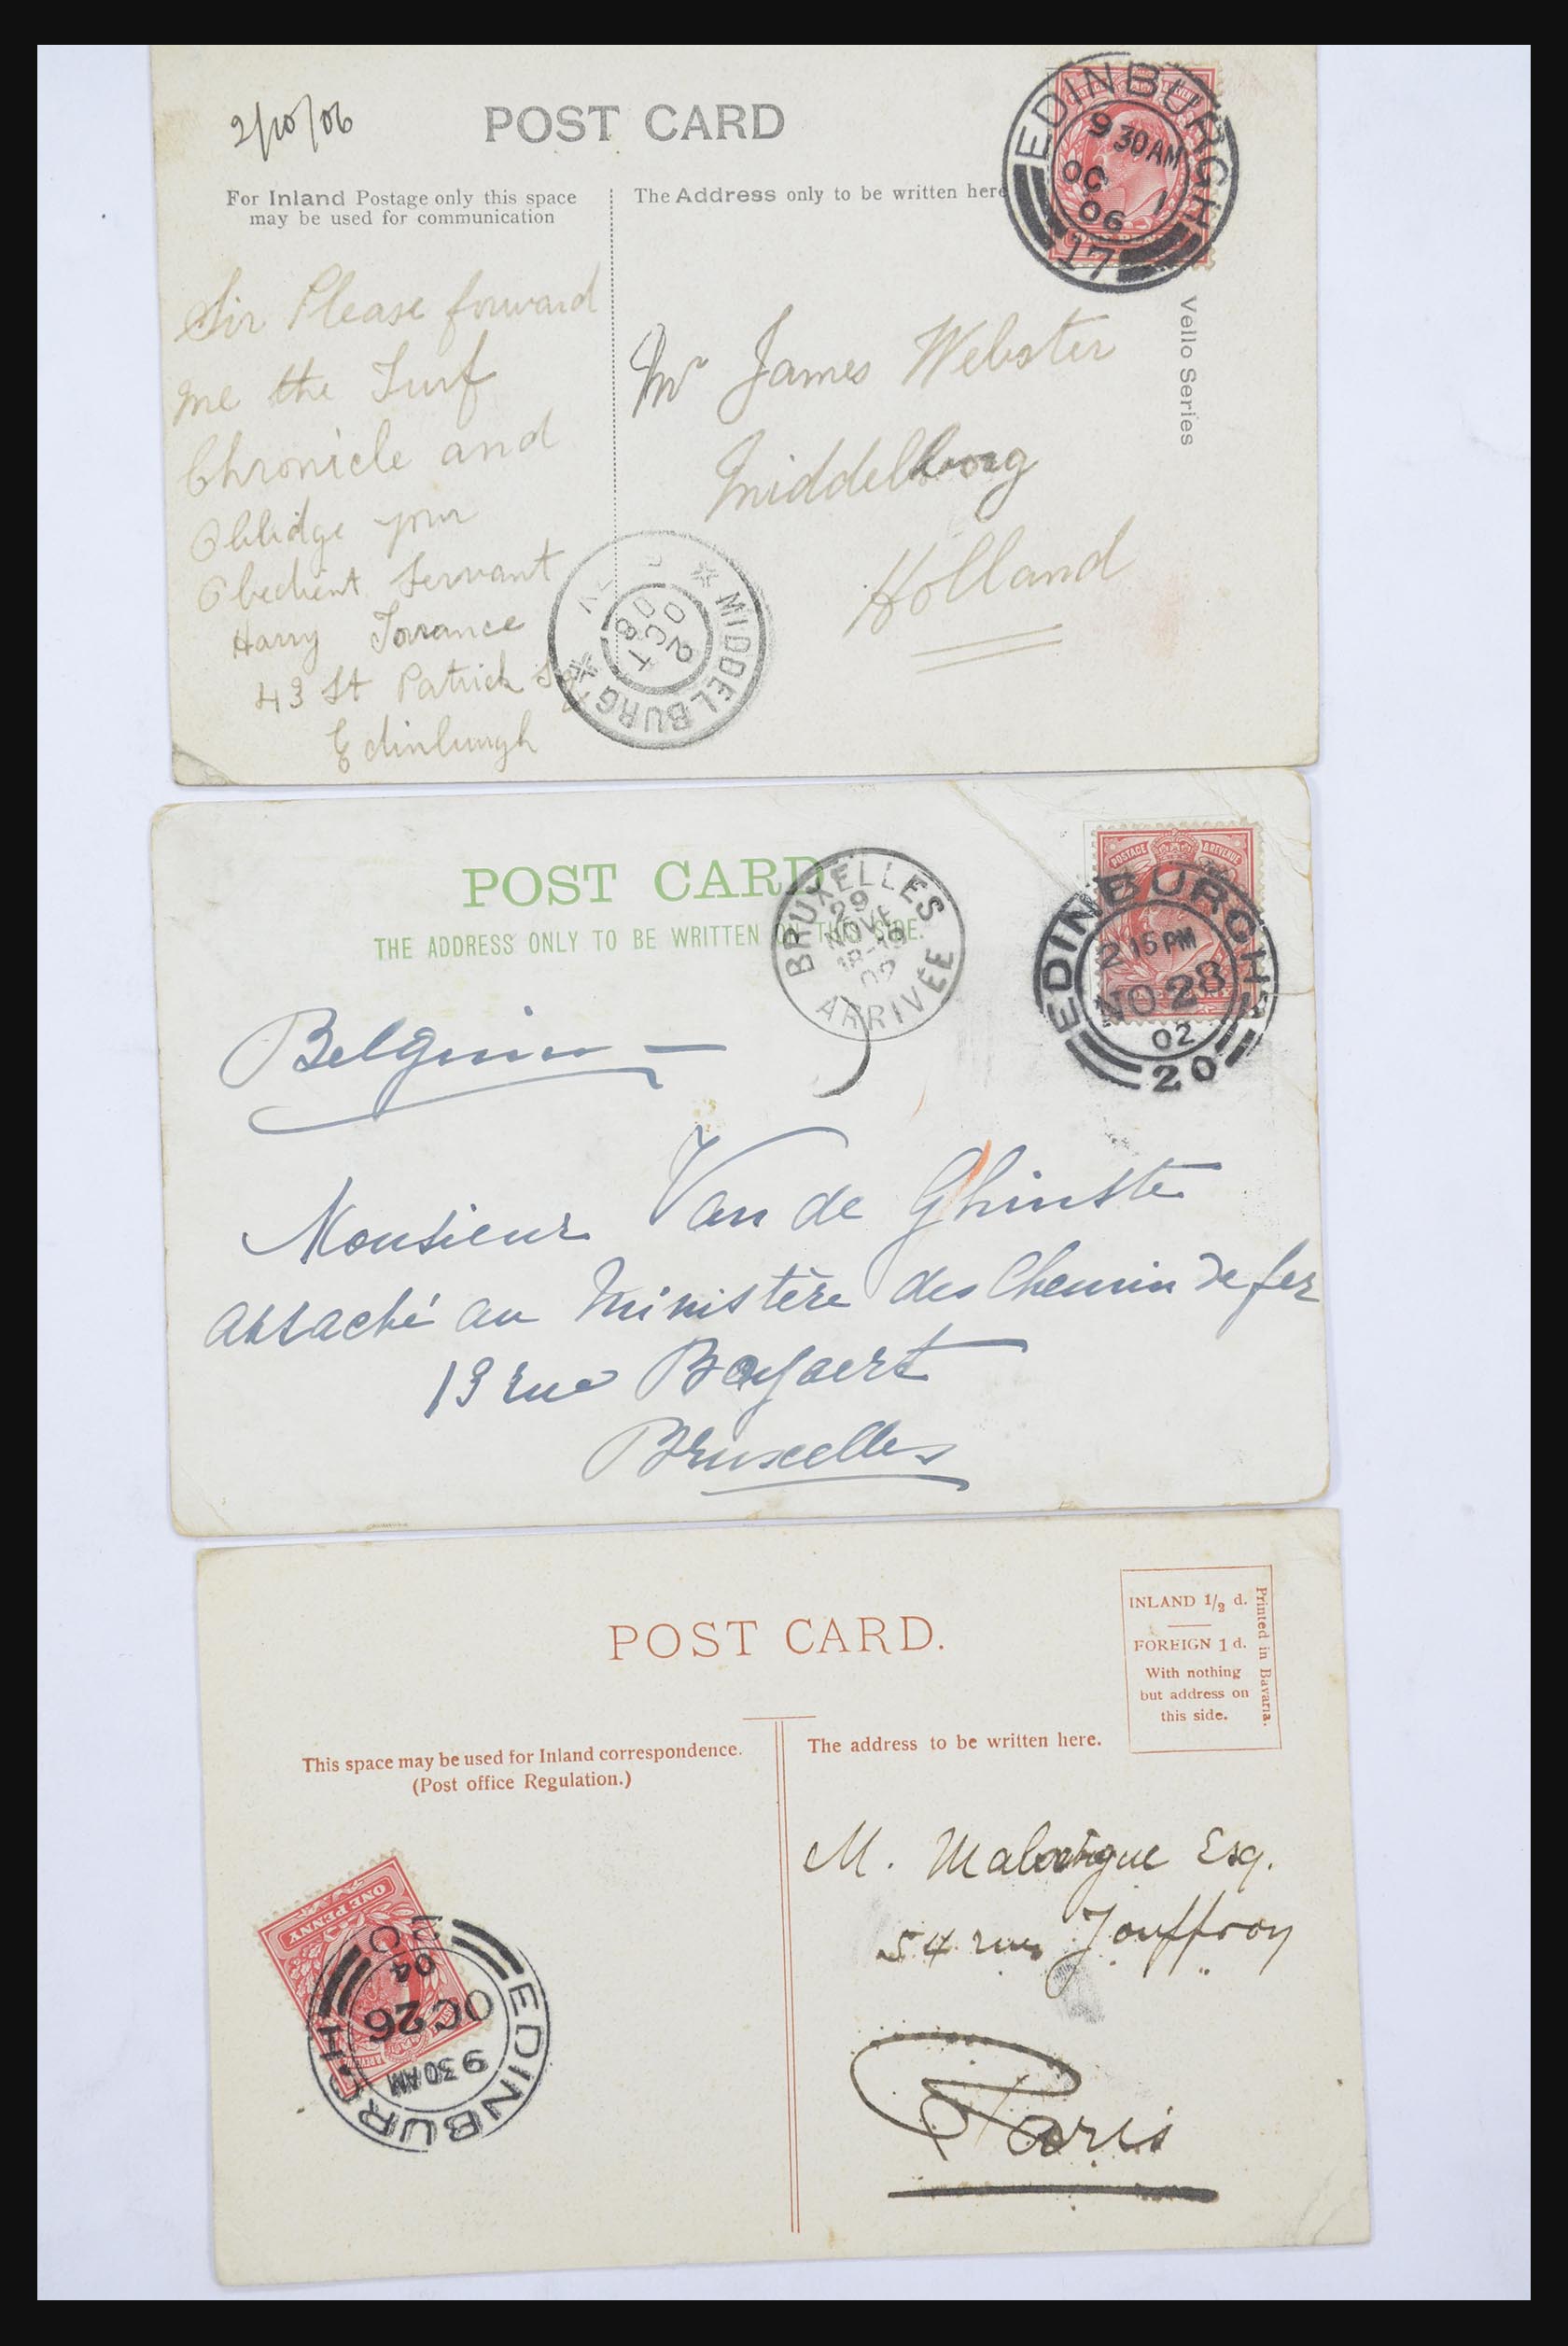 2/10/06
POST CARD
For Inland Postage only this space
may be used for communication
The Address only to be written here
EDINBURGH
9 30 AM
OC 1
06
17
Vello Series
Sir Please forward
me the Turf
Chronicle and
Oblidge your
Obedient Servant
Harry Torrance
43 St Patrick Sq
Edinburgh
Mr James Webster
Middelborg
Holland
MIDDELBURG
2
OCT
06
POST CARD
THE ADDRESS ONLY TO BE WRITTEN THIS SIDE.
BRUXELLES
29
NOVE
02
ARRIVÉE
POSTAGE & REVENUE
EDINBURGH
2 15 PM
NO 28
02
20
Belgium
Monsieur Van de Ghinste
attaché au Ministère des Chemin de fer
19 rue Boyaert
Bruxelles
POST CARD.
INLAND 1/2 d.
FOREIGN 1 d.
With nothing
but address on
this side.
Printed in Bavaria.
This space may be used for Inland correspondence.
(Post office Regulation.)
The address to be written here.
ONE PENNY
EDINBURGH
9 30 AM
OC 26
04
20
M. Esq.
54 rue Jouffroy
Paris